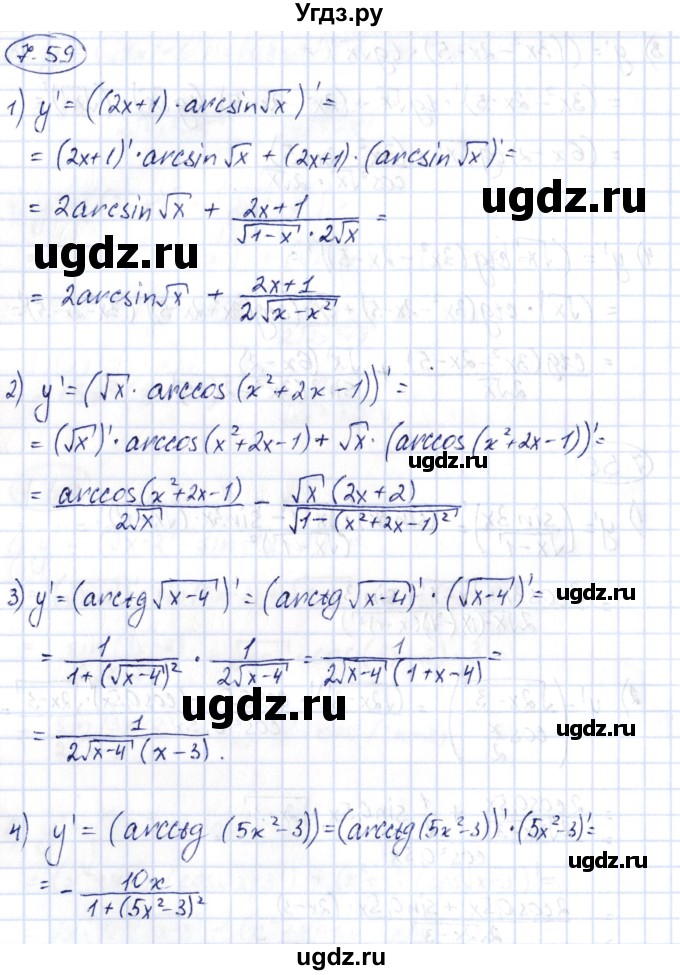 Угдз.ру
7.59
1) y' = ((2x+1) · arcsin√x)' =
= (2x+1)' · arcsin√x + (2x+1) · (arcsin√x)' =
ugdz.ru
= 2arcsin√x + (2x+1)/(√(1-x) · 2√x) =
ugdz.ru
ugdz.ru
= 2arcsin√x + (2x+1)/(2√(x-x²))
2) y' = (√x · arccos(x²+2x-1))' =
= (√x)' · arccos(x²+2x-1) + √x · (arccos(x²+2x-1))' =
ugdz.ru
= arccos(x²+2x-1)/(2√x) - √x(2x+2)/√(1-(x²+2x-1)²)
3) y' = (arctg√(x-4))' = (arctg√(x-4))' · (√(x-4))' =
= 1/(1+(√(x-4))²) · 1/(2√(x-4)) = 1/(2√(x-4)(1+x-4)) =
ugdz.ru
ugdz.ru
= 1/(2√(x-4)(x-3)).
4) y' = (arcctg(5x²-3)) = (arcctg(5x²-3))' · (5x²-3)' =
ugdz.ru
= - 10x/(1+(5x²-3)²)
ugdz.ru